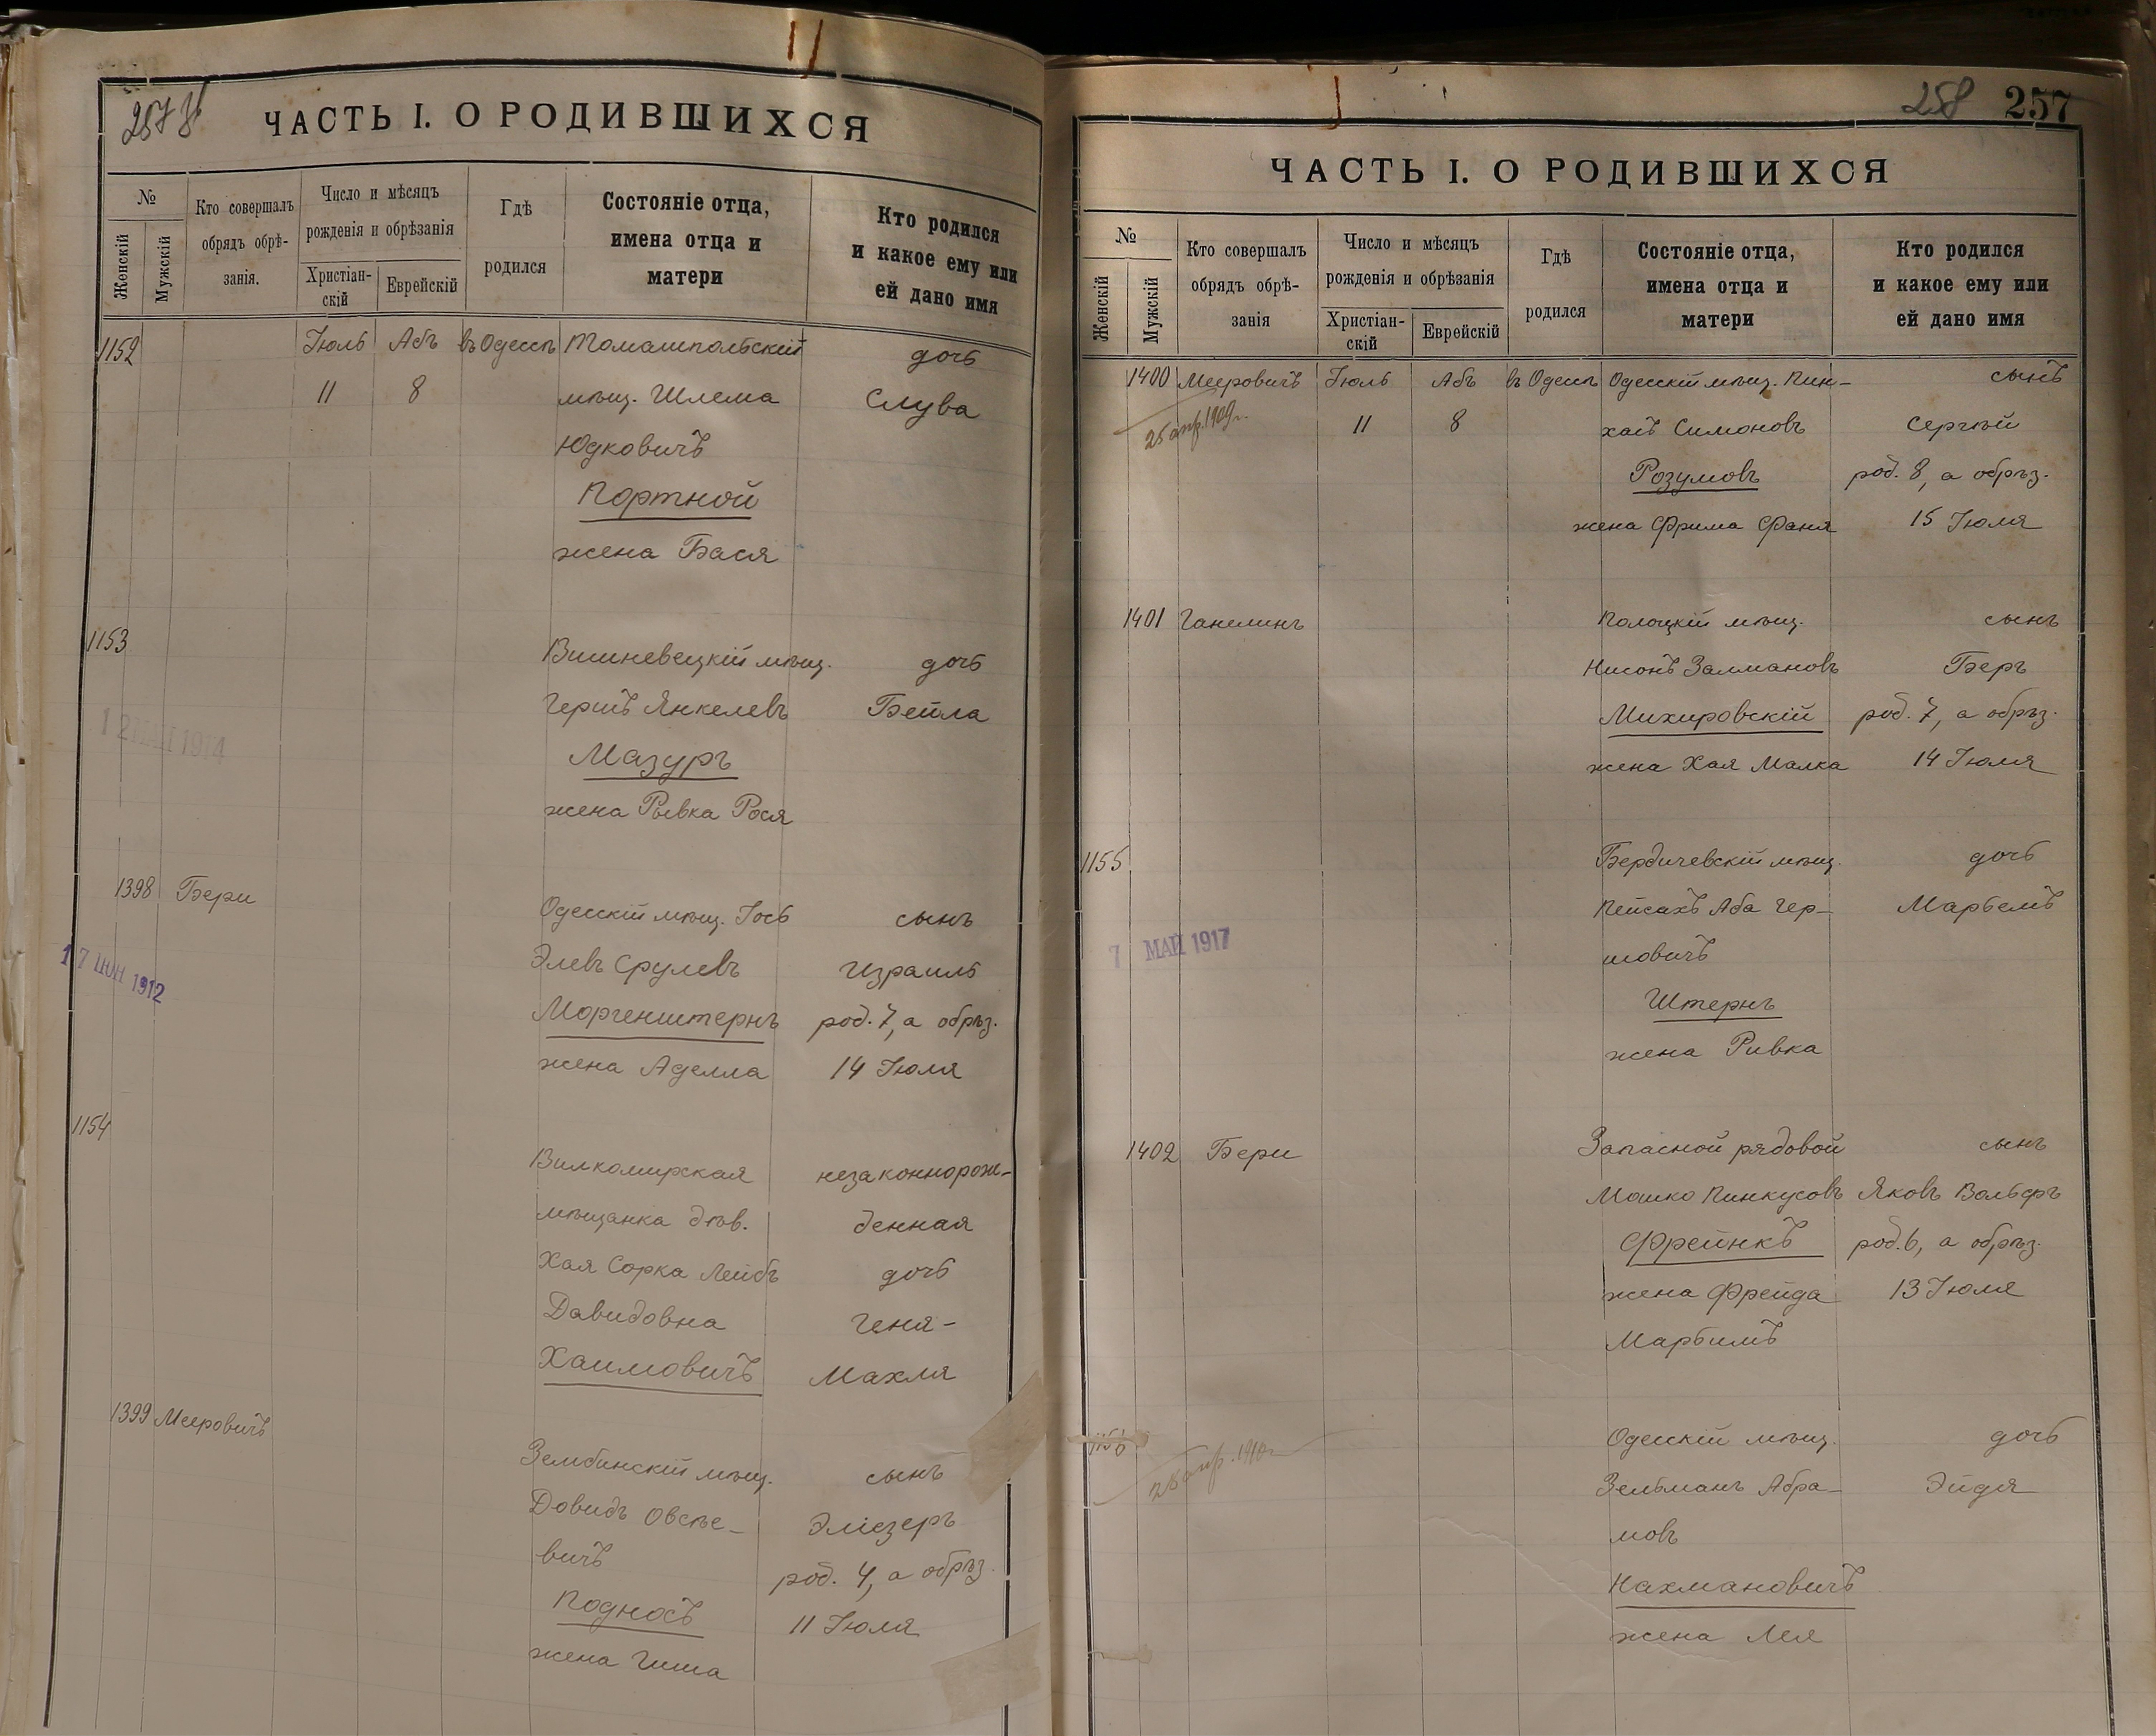 ЧАСТЬ I. О РОДИВШИХСЯ
№
Женскій
Мужскій
Кто совершалъ
обрядъ обрѣ-
занія.
Число и мѣсяцъ
рожденія и обрѣзанія
Христіан-
скій
Еврейскій
Гдѣ
родился
Состояніе отца,
имена отца и
матери
Кто родился
и какое ему или
ей дано имя
1152 Іюль Абъ въ Одессѣ Томашпольскій дочь
11 8 мѣщ. Шлема Слува
Юдковичъ
Портной
жена Бася
1153 Вишневецкій мѣщ. дочь
Гершъ Янкелевъ Бейла
Мазуръ
жена Рывка Рося
1398 Бери Одесскій мѣщ. Іось сынъ
17 ІЮН 1912
Элевъ Срулевъ Израиль
Моргенштернъ род. 7, а обрѣз.
жена Аделла 14 Іюля
1154 Вилкомирская незаконнорож-
мѣщанка дѣв. денная
Хая Сорка Лейбъ дочь
Давидовна Геня-
Хаимовичъ Махля
1399 Мееровичъ Зембинскій мѣщ. сынъ
Довидъ Овсѣе- Эліезеръ
вичъ род. 4, а обрѣз.
Подносъ 11 Іюля
жена Гиша
258 257
ЧАСТЬ I. О РОДИВШИХСЯ
№
Женскій
Мужскій
Кто совершалъ
обрядъ обрѣ-
занія
Число и мѣсяцъ
рожденія и обрѣзанія
Христіан-
скій
Еврейскій
Гдѣ
родился
Состояніе отца,
имена отца и
матери
Кто родился
и какое ему или
ей дано имя
1400 Мееровичъ Іюль Абъ въ Одессѣ Одесскій мѣщ. Пин- сынъ
25 апр. 1909 г. 11 8 хасъ Симоновъ Сергѣй
Розумовъ род. 8, а обрѣз.
жена Фрима Фаня 15 Іюля
1401 Ганелинъ Полоцкій мѣщ. сынъ
Нисонъ Залмановъ Беръ
Михировскій род. 7, а обрѣз.
жена Хая Малка 14 Іюля
1155 Бердичевскій мѣщ. дочь
Пейсахъ Аба Гер- Марьемъ
7 МАЙ 1917
шовичъ
Штернъ
жена Ривка
1402 Бери Запасной рядовой сынъ
Мошко Пинкусовъ Яковъ Вольфъ
Фрейнкъ род. 6, а обрѣз.
жена Фрейда 13 Іюля
Марьимъ
1156 Одесскій мѣщ. дочь
Зельманъ Абра- Эйдя
мовъ
Нахмановичъ
жена Лея